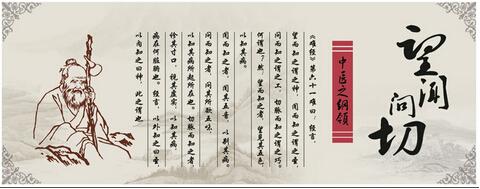 望闻问切
中医之纲领
《难经》第六十一难曰：经言，
望而知之谓之神，闻而知之谓之圣，
问而知之谓之工，切脉而知之谓之巧。
何谓也？然：望而知之者，望见其五色，
以知其病。
闻而知之者，闻其五音，以别其病。
问而知之者，问其所欲五味，
以知其病所起所在也。切脉而知之者，
诊其寸口，视其虚实，以知其病，
病在何脏腑也。经言，以外知之曰圣，
以内知之曰神，此之谓也。